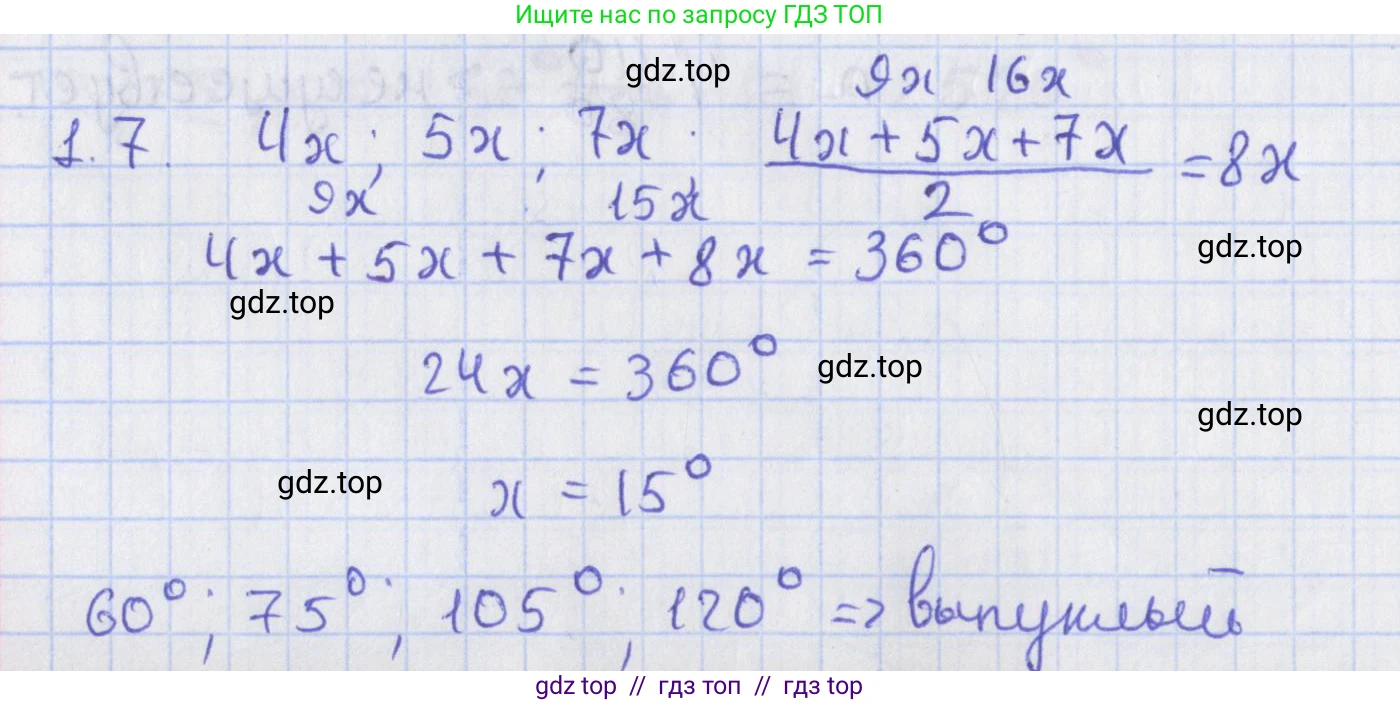 Ищите нас по запросу ГДЗ ТОП
gdz.top
9x 16x
1.7. 4x; 5x; 7x. (4x + 5x + 7x)/2 = 8x
9x 15x
4x + 5x + 7x + 8x = 360°
gdz.top
gdz.top
24x = 360°
gdz.top
gdz.top
gdz.top
x = 15°
60°; 75°; 105°; 120° => выпуклый
gdz top // гдз топ // гдз top